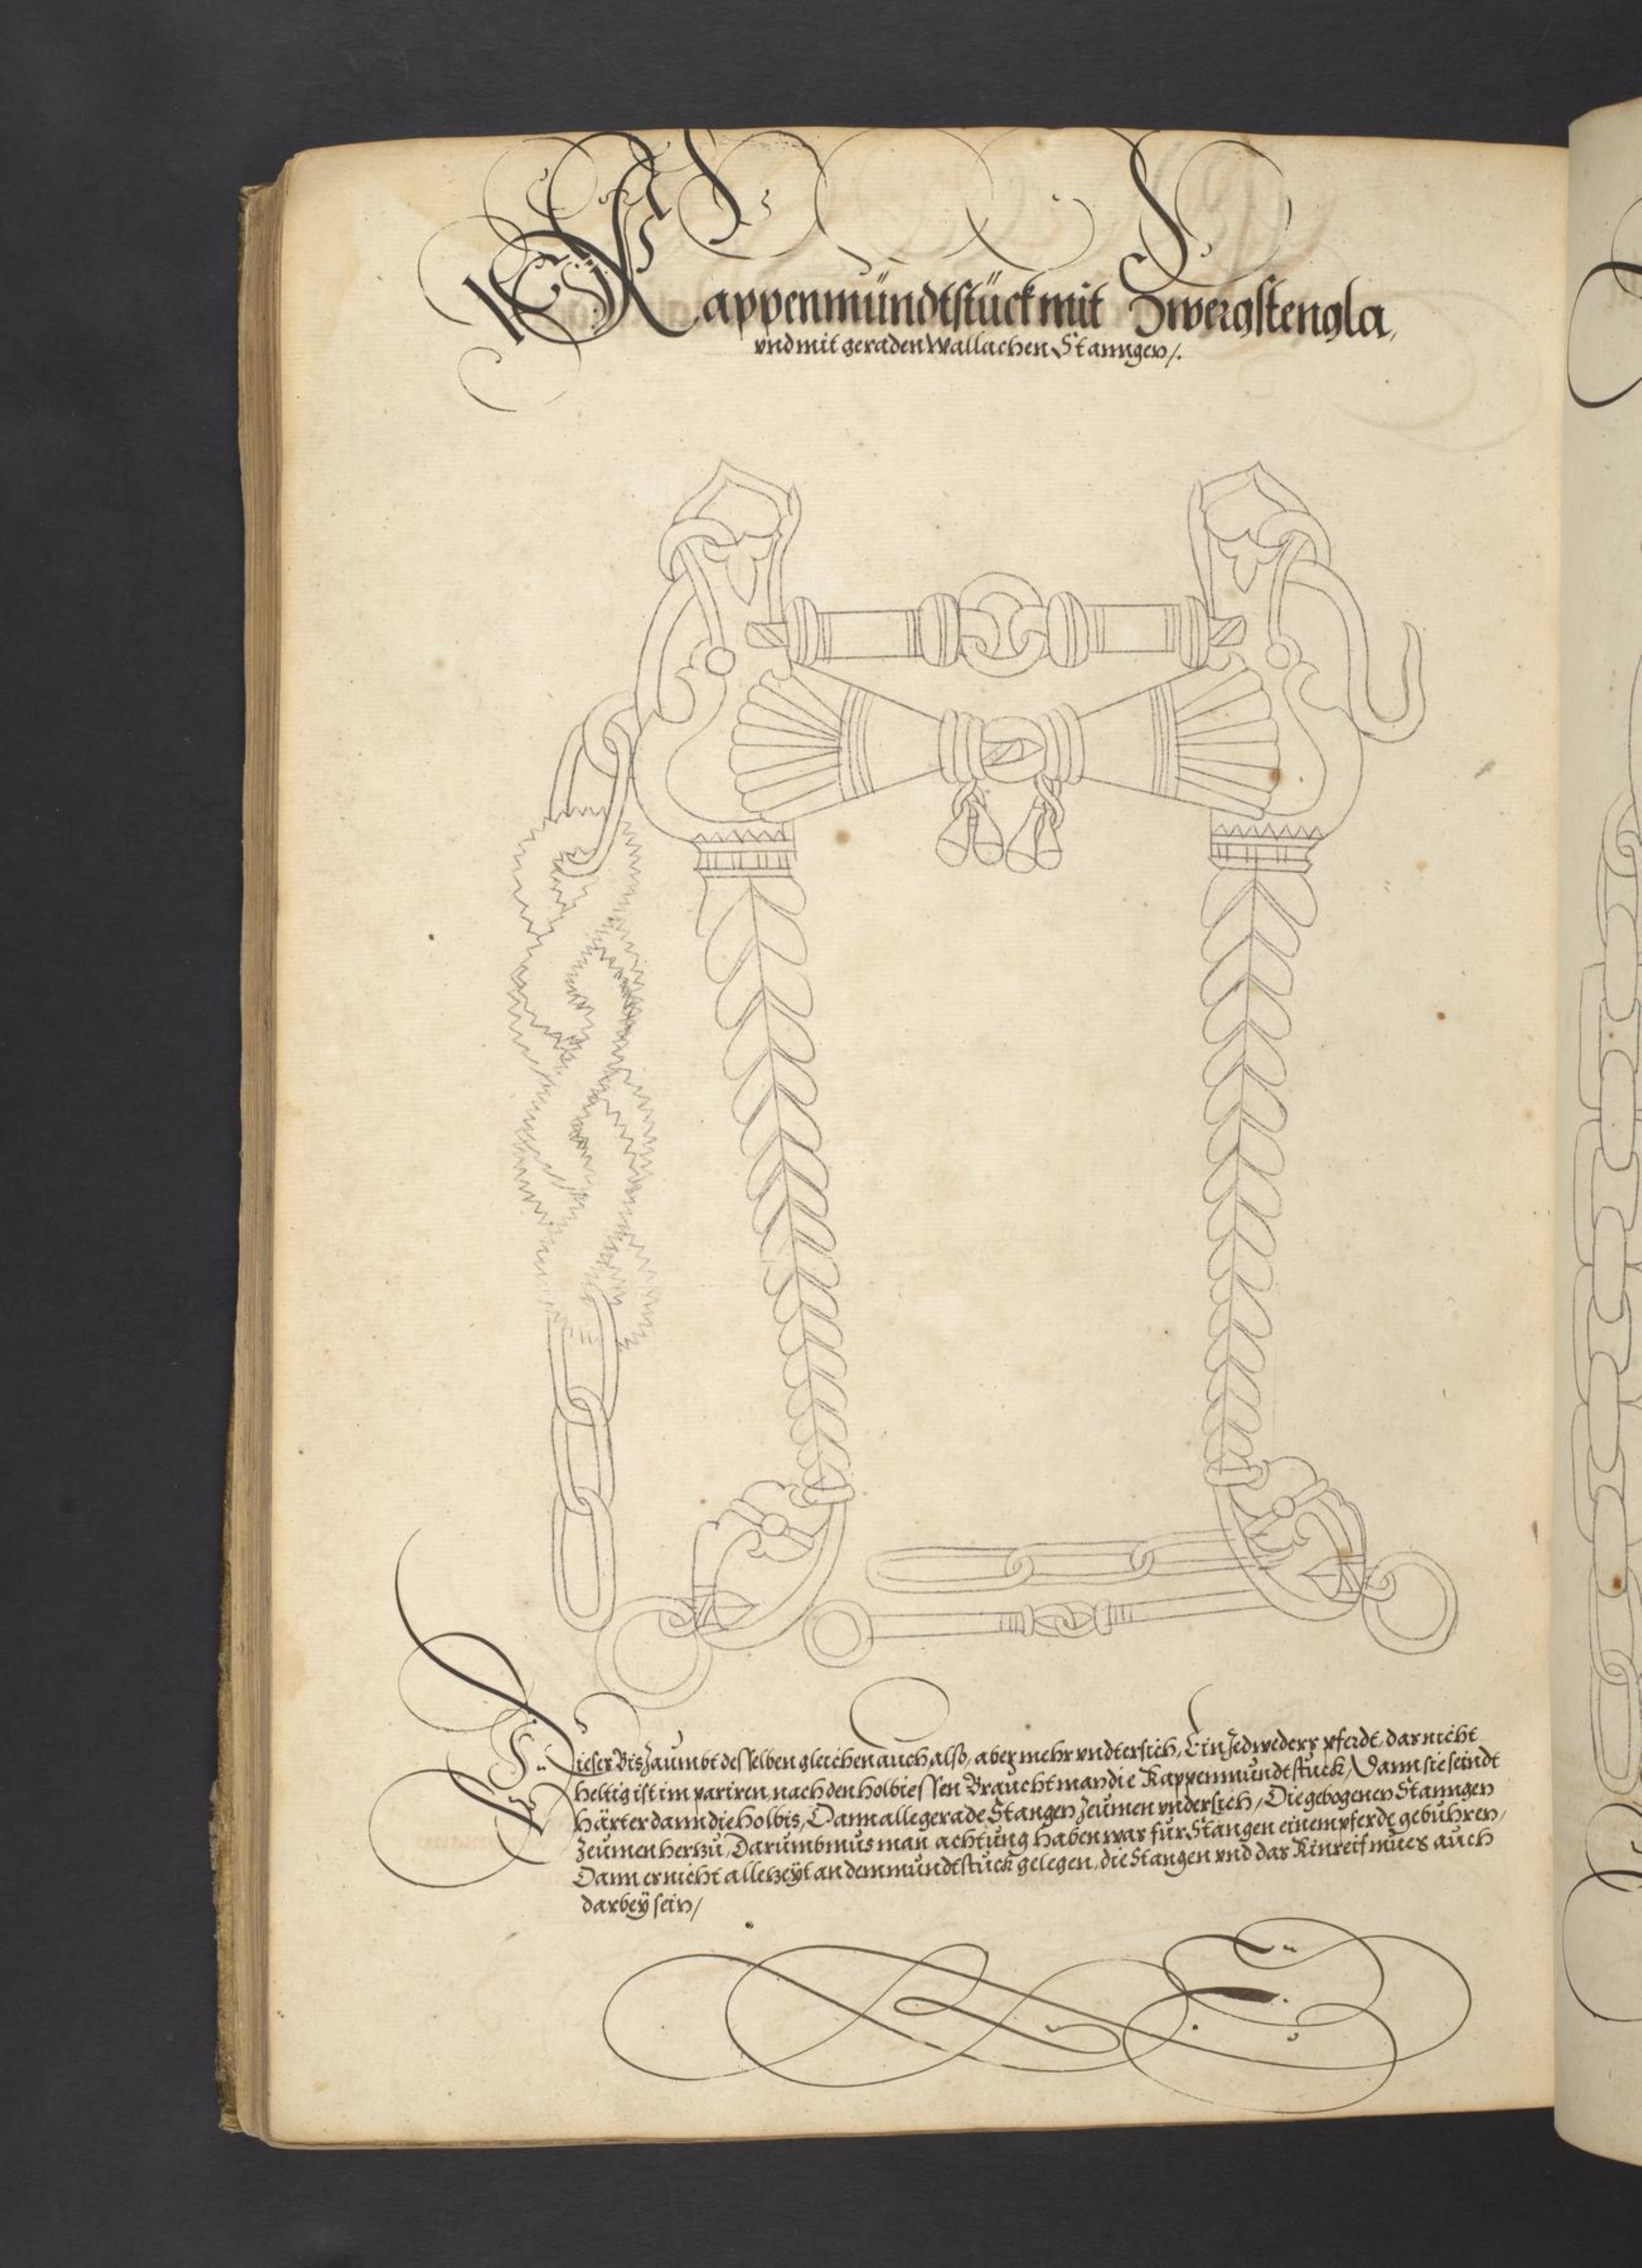 Kappenmündtstück mit Zwergstengla,
vnd mit geraden Wallachen Stanngen /.
Dieser Bis Zaumbt desselben gleichen auch also, aber mehr vndtersich, Ein Jedweders pferdt, das nicht
heltig ist im pariren, nach den holbiessen Braucht man die Kappenmundtstuck / Dann sie seindt
härter dann die Holbis, Dann alle gerade Stangen Zeumen vndersich / Die gebogenen Stanngen
Zeumen herzu, Darumb mus man achtung haben was für Stangen einem pferde gebühren,
Dann es nicht allezeyt an dem mundtstück gelegen, die Stangen vnd das Kinreif mues auch
darbeÿ sein /